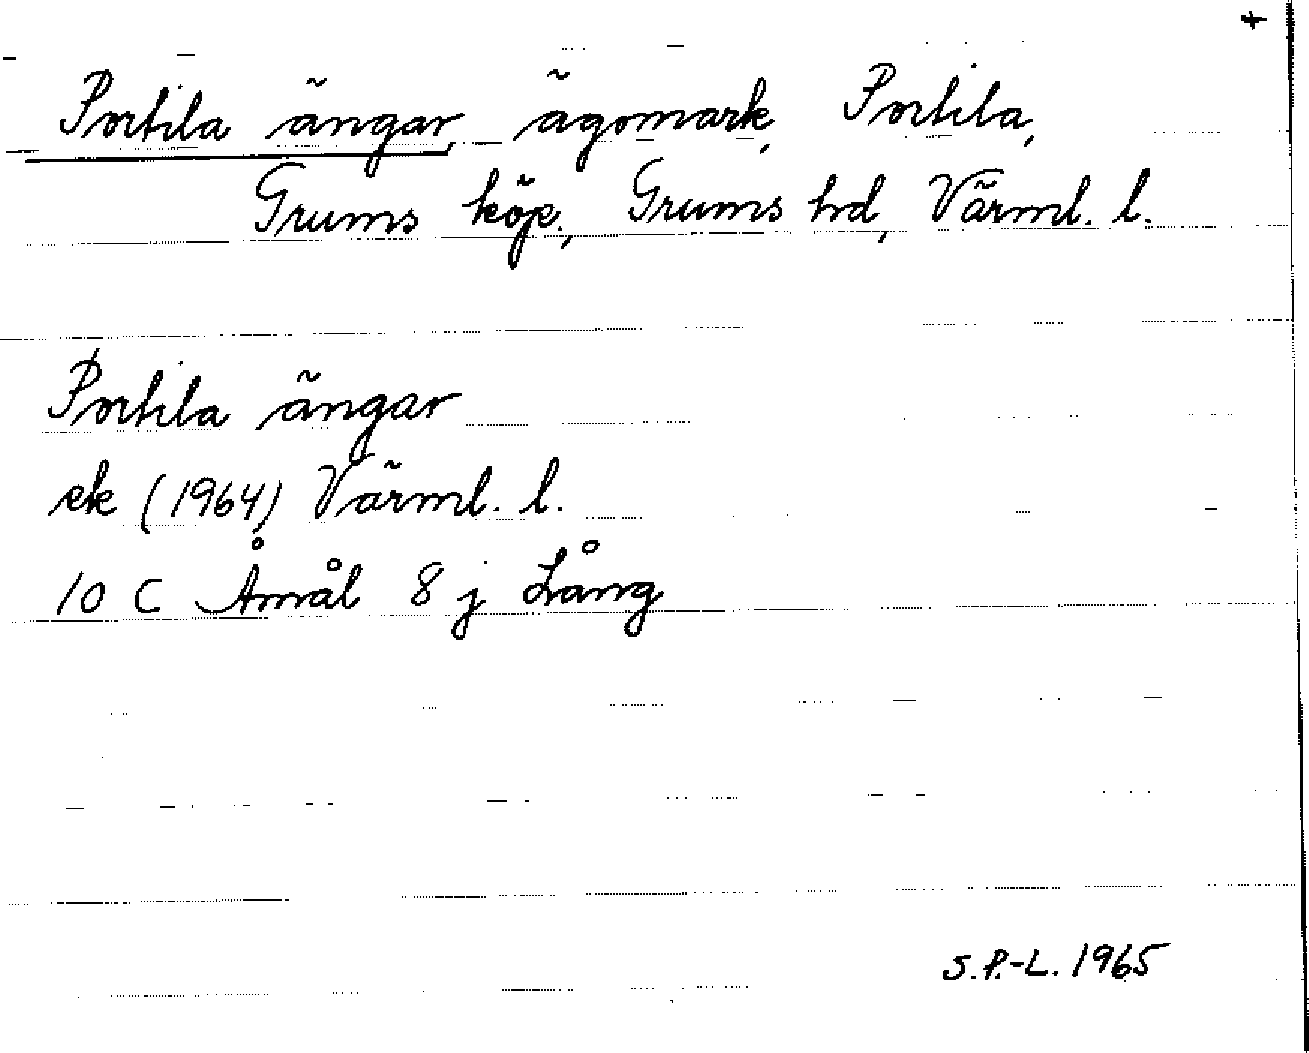 Portila ängar, ägomark, Portila,
Grums köp., Grums hd, Värml. l.
Portila ängar
ek (1964) Värml. l.
10 C Åmål 8 j Lång
S.P.-L. 1965